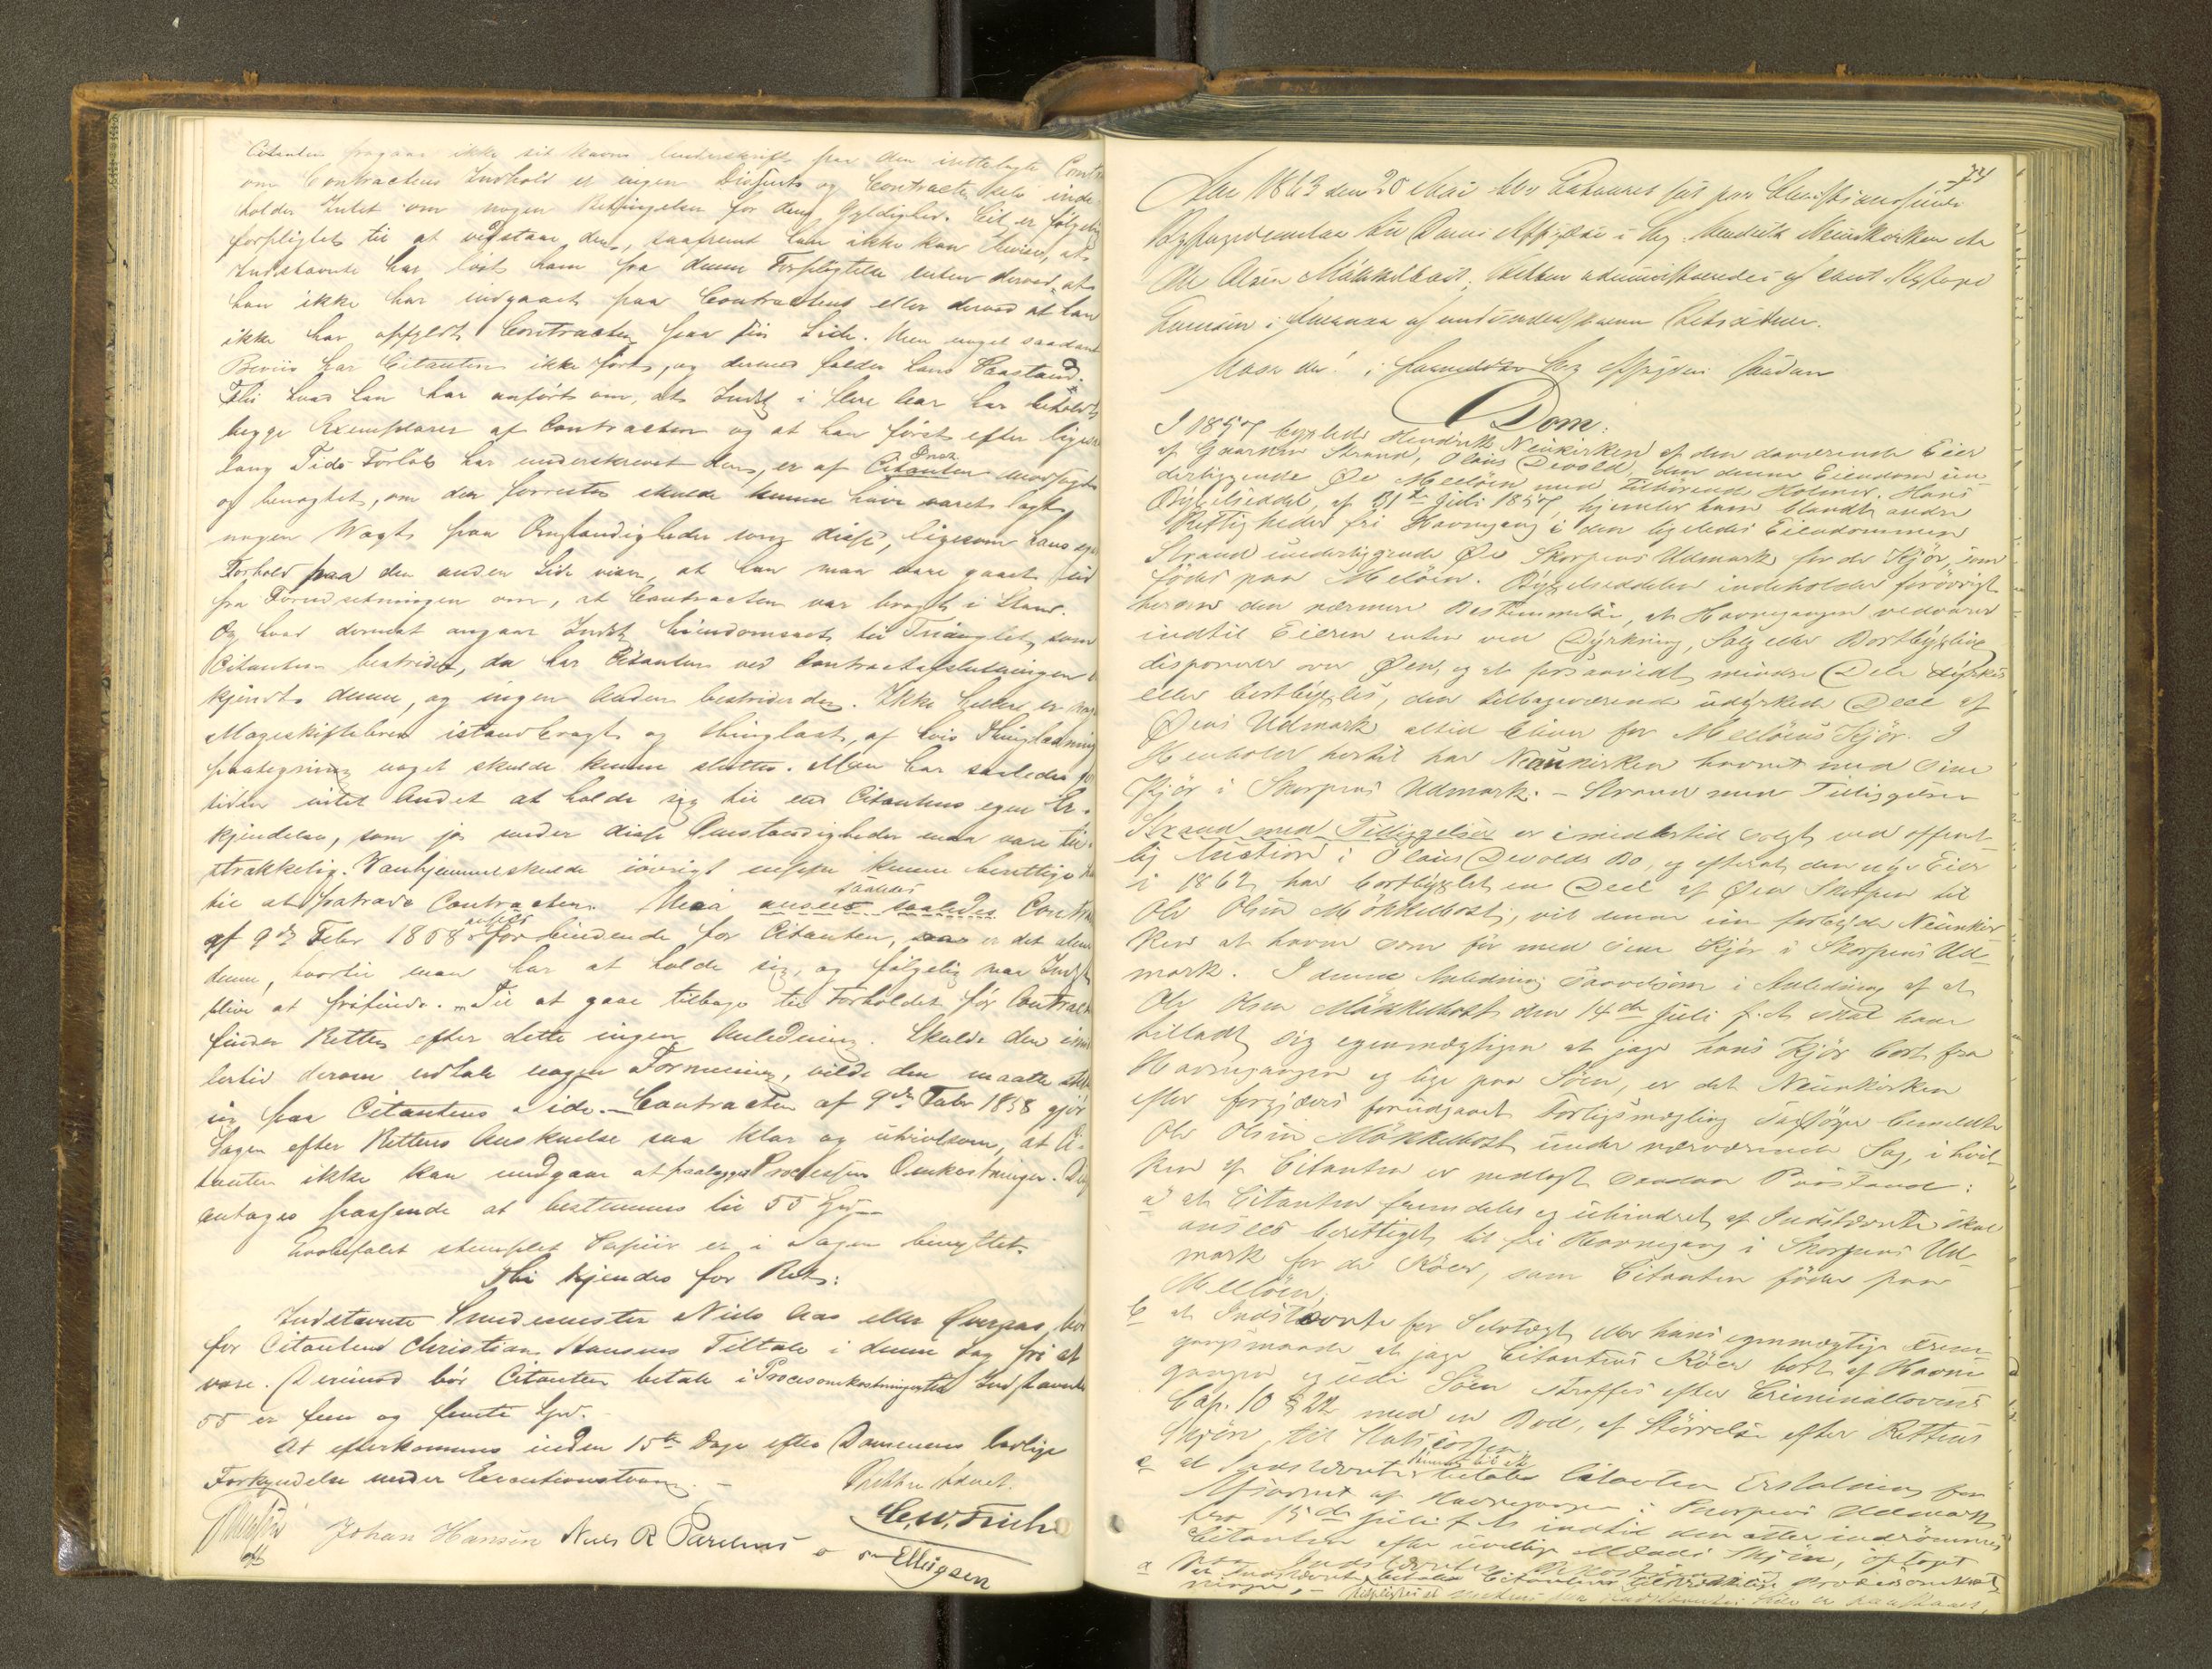 Citanten fragaar ikke sit Navns Underskrift paa den irettelagte Contra
om Contractens Indhold er ingen Dispute og Contracten selv inde
holder Intet om nogen Betingelse for dens Gyldighed. Cit er følgelig
forpligtet til at vedstaae den, saafremt han ikke kan bevise, at
Indstævnte har løst ham fra denne Forpligtelse enten derved, at
han ikke har indgaaet paa Contracten eller derved at han
ikke har opfyldt Contracten paa sin Side. Men noget saadant
Beviis har Citanten ikke ført, og dermed falder hans Paastand.
Thi hvad han har anført om, at Indst i flere Aar har beholdt
begge Exemplarer af Contracten og at han først efter ligesaa
lang Tids Forløb har underskrevet den, er af Citanten modsagt
og benægtet, om der forresten skulde kunne have været lagt
nogen Vægt paa Omstændigheder som disse, ligesom hans eget
Forhold paa den anden Side viser, at han maa være gaaet ud
fra Forudsætningen om, at Contracten var bragt i Stand.
Og hvad dernæst angaar Indst Eiendomsret til Trianglet, som
Citanten bestrider, da har Citanten ved Contractafslutningen
kjendt denne, og ingen Anden bestrider den. Ikke heller er
Mageskiftebrev istandbragt og thinglæst, af hvis Thinglæsnings
paategning noget skulde kunne sluttes. Man har saaledes
intet Andet at holde sig til end Citantens egen Er-
kjendelse, som jo under disse Omstændigheder maa være til-
strækkelig. Vanhjemmel skulde iøvrigt neppe kunne berettige
til at fratræde Contracten. Maa ansees saaledes Contra
af 9de Febr 1858 for bindende for Citanten, er det alene
denne, hvortil man har at holde sig, og følgelig maa Indst
blive at frifinde. – Til at gaae tilbage til Forholdet før Contract
finder Retten efter dette ingen Anledning. Skulde den imid
lertid derom udtale nogen Formening, vilde den maatte
paa Citantens Side. – Contracten af 9de Febr 1858 gjør
Sagen efter Rettens Anskuelse saa klar og utvivlsom, at Ci-
tanten ikke kan undgaae at paalægges Processens Omkostninger. De
antages passende at bestemmes til 55 Spd –
Lovbefalet stemplet Papiir er i Sagen benyttet.
Thi kjendes for Ret:
Indstævnte Smedemester Niels Aas eller bør
for Citanten Christian Hansens Tiltale i denne Sag fri at
være. Derimod bør Citanten betale i Procesomkostninger til Indstævnte
55 er fem og femti Spd.
At efterkommes inden 15te Dage efter Dommens lovlige
Forkyndelse under Executionstvang. –
Retten hævet.
C.W. Frich
Johan Hansen Niels R Parelius
Ellingsen
74
Aar 1863 den 20 Mai blev Extraret sat paa Christianssunds
Raadstue til Doms Afsigelse i Sag: Hendrik Neunkirken
Ole Olsen Mökkelbost; Retten administreredes af
i Overvær af underskrevne Retsvidner.
Hvor da! i foranstaaende Sag afsigdes saadan
Dom:
I 1857 bygslede Hendrik Neunkirken af den daværende Eier
af Gaarden Strand, Olaus Devold, den denne Eiendom un
derliggende Øe Mellöen med tilhörende Holmer. Hans
Bygselseddel, af 31te Juli 1857, hjemler ham blandt andre
Rettigheder fri Havnegang i den ligeledes Eiendommen
Strand underliggende Øe Skorpens Udmark for de Kjör, som
födes paa Mellöen. Bygselseddelen indeholder forövrigt
herom den nærmere Bestemmelse, at Havnegangen vedvarer
indtil Eieren enten ved Dyrkning, Salg eller Bortbygsling
disponerer over Øen, og at forsaavidt mindre Dele dyrkes
eller bortbygsles, den tilbageværende udyrkede Deel af
Øens Udmark altid bliver for Mellöens Kjör. I
Henhold hertil har Neunkirken havnet med sine
Kjör i Skorpens Udmark. – Strand med Tilliggelser
Strand med Tilliggelser er imidlertid solgt ved offent-
lig Auction i Olaus Devolds Bo, og efterat den nye Eier
i 1862 har bortbygslet en Deel af Øen Skorpen til
Ole Olsen Mökkelbost, vil denne nu forbyde Neunkir
ken at havne som för med sine Kjör i Skorpens Ud-
mark. I denne Anledning saavelsom i Anledning af at
Ole Olsen Mökkelbost den 14de Juli f. A skal have
tilladt sig egenmægtigen at jage hans Kjör bort fra
Havnegangen og lige paa Söen, er det Neunkirken
efter forgjæves forudgaaet Forligsmægling sagsöger bemeldte
Ole Olsen Mökkelbost under nærværende Sag, i hvil-
ken af Citanten er nedlagt saadan Paastand:
a at Citanten fremdeles og uhindret af Indstævnte skal
ansees berettiget til fri Havnegang i Skorpens Ud-
mark for de Köer, som Citanten föder paa
Mellöen;
b at Indstævnte for Selvtægt eller hans egenmægtige Frem-
gangsmaade at jage Citantens Köer bort af Havne
gangen og udi Söen straffes efter Criminallovens
Cap. 10 § 22 med en Bod, af Störrelse efter Rettens
Skjön, til Statscassen
c at Indstævnte betaler Citanten Erstatning for
Afsavnet af Havnegangen i Skorpens Udmark
fra 15de Juli f. A indtil den atter indrömmes
Citanten efter uvillige Mænds Skjön, optaget
paa Indstævntes Bekostning
d at Indstævnte betaler Citantens Procesomkost
ninger, –